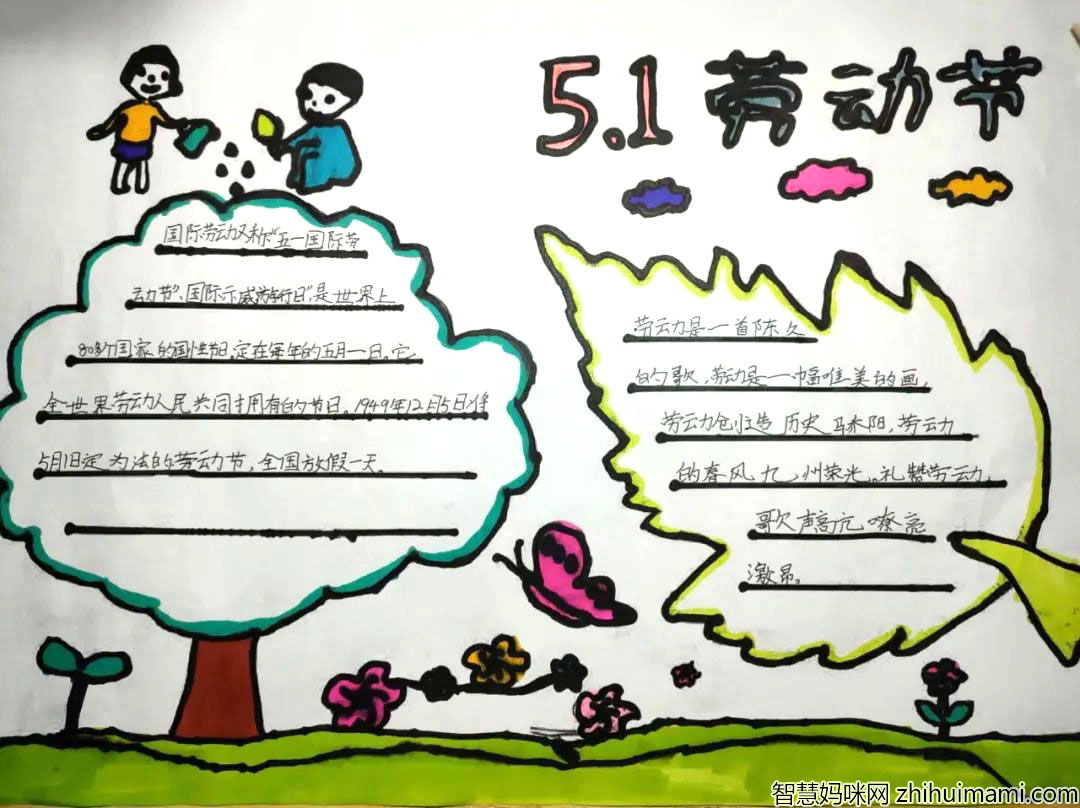 5.1 劳动节
国际劳动又称“五一国际劳
动节”、国际示威游行日”,是世界上
80多个国家的国性节日。定在每年的五月一日。它
全世界劳动人民共同拥有的节日。1949年12月5日将
5月1日定为法的劳动节,全国放假一天。
劳动是一首陈久
的歌,劳动是一幅唯美的画,
劳动创造历史 骄阳,劳动
的春风九州荣光。礼赞劳动,
歌声高亢嘹亮
激昂。
智慧妈咪网 zhihuimami.com